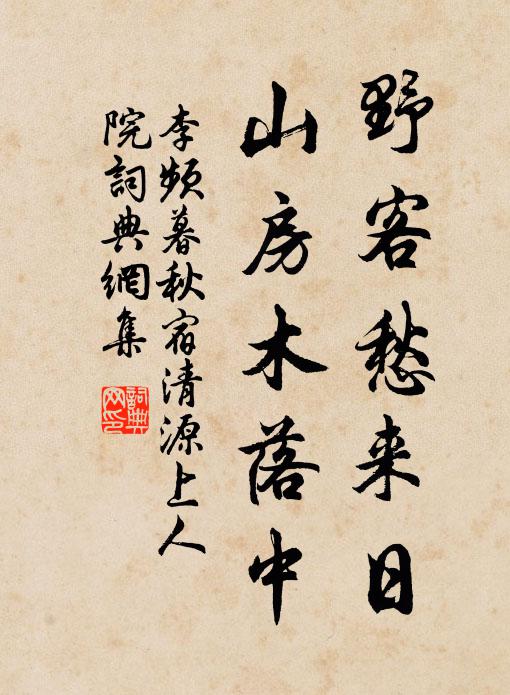 野客愁来日
山房木落中
李频暮秋宿清源上人
院詞典網集
詞典
网印